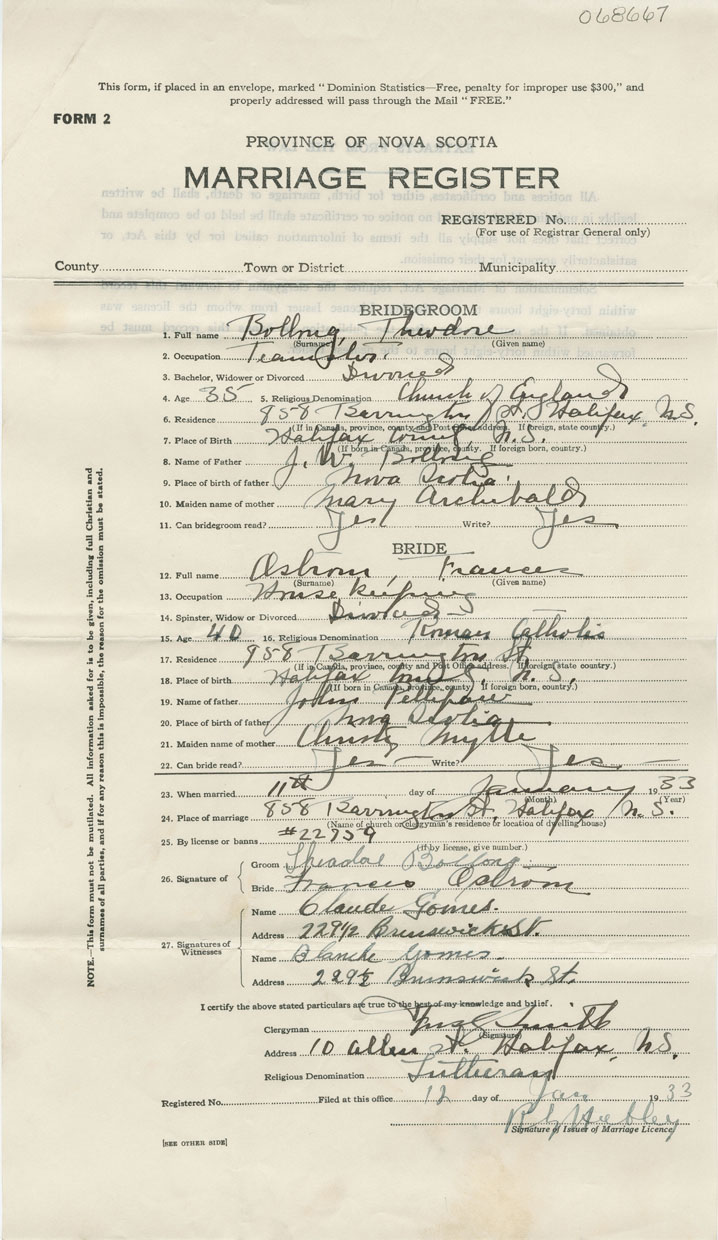 068667
This form, if placed in an envelope, marked " Dominion Statistics—Free, penalty for improper use $300," and
properly addressed will pass through the Mail " FREE."
FORM 2
PROVINCE OF NOVA SCOTIA
MARRIAGE REGISTER
REGISTERED No.
(For use of Registrar General only)
County Town or District Municipality
BRIDEGROOM
1. Full name Bollong, Theodore
(Surname) (Given name)
2. Occupation Teamster.
3. Bachelor, Widower or Divorced Divorced
4. Age 35 5. Religious Denomination Church of England
6. Residence 858 Barrington St. Halifax, N.S.
(If in Canada, province, county and Post Office address. If foreign, state country.)
7. Place of Birth Halifax County, N.S.
(If born in Canada, province, county. If foreign born, country.)
8. Name of Father J. W. Bollong
9. Place of birth of father Nova Scotia.
10. Maiden name of mother Mary Archibald
11. Can bridegroom read? Yes Write? Yes
BRIDE
12. Full name Ostrom, Frances
(Surname) (Given name)
13. Occupation House keeping
14. Spinster, Widow or Divorced Divorced
15. Age 40 16. Religious Denomination Roman Catholic
17. Residence 958 Barrington St.
(If in Canada, province, county and Post Office address. If foreign, state country.)
18. Place of birth Halifax County, N.S.
(If born in Canada, province, county. If foreign born, country.)
19. Name of father John
20. Place of birth of father Nova Scotia
21. Maiden name of mother Christy
22. Can bride read? Yes — Write? Yes. —
23. When married 11th day of January 1933
(Month) (Year)
24. Place of marriage 858 Barrington St, Halifax N.S.
(Name of church or clergyman's residence or location of dwelling house)
25. By license or banns #22759
(If by license, give number.)
26. Signature of
Groom Theodore Bollong
Bride Frances Ostrom
27. Signatures of Witnesses
Name Claude Gomes.
Address 229½ Brunswick St.
Name Blanche Gomes.
Address 229½ Brunswick St.
I certify the above stated particulars are true to the best of my knowledge and belief.
Clergyman Smith
(Signature)
Address 10 Allen St. Halifax, N.S.
Religious Denomination Lutheran
Registered No. Filed at this office 12 day of Jan 1933
Signature of Issuer of Marriage Licence
[SEE OTHER SIDE]
NOTE.—This form must not be mutilated. All information asked for is to be given, including full Christian and
surnames of all parties, and if for any reason this is impossible, the reason for the omission must be stated.